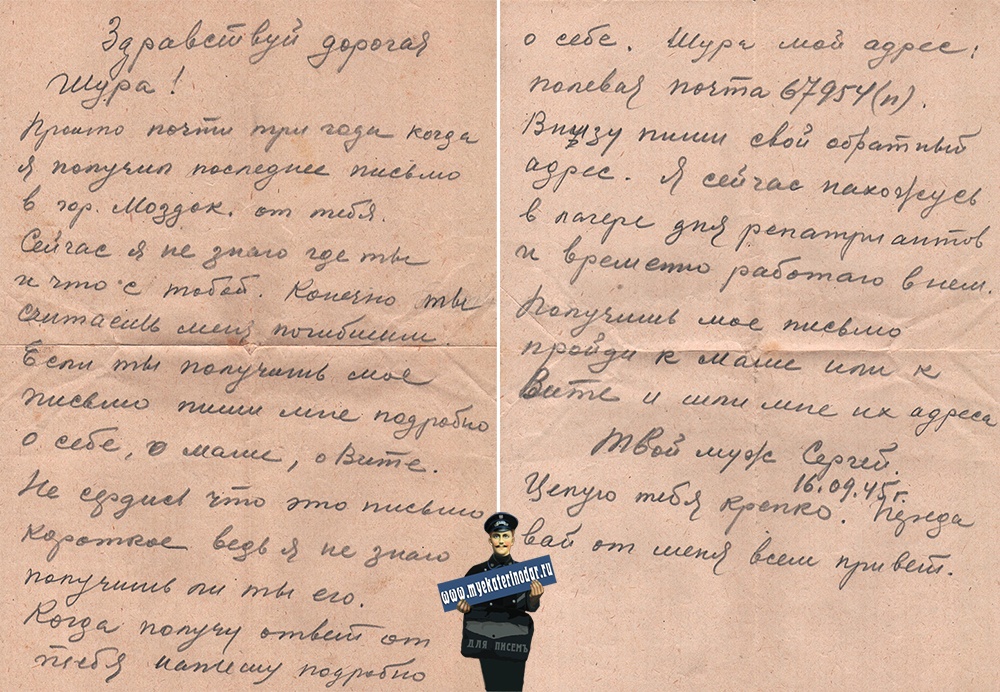 Здравствуй дорогая
Шура!
Прошло почти три года когда
я получил последнее письмо
в гор. Моздок. от тебя.
Сейчас я не знаю где ты
и что с тобой. Конечно ты
считаешь меня погибшим.
Если ты получишь мое
письмо пиши мне подробно
о себе, о маме, о Вите.
Не сердись что это письмо
короткое ведь я не знаю
получишь ли ты его.
Когда получу ответ от
тебя напишу подробно
о себе. Шура мой адрес:
полевая почта 67954(п).
Внизу пиши свой обратный
адрес. Я сейчас нахожусь
в лагере для репатриантов
и временно работаю в нем.
Получишь мое письмо
пройди к маме или к
Вите и шли мне их адреса
Твой муж Сергей.
16.09.45г.
Целую тебя крепко. Переда
вай от меня всем привет.
www.myekaterinodar.ru
ДЛЯ ПИСЕМЪ